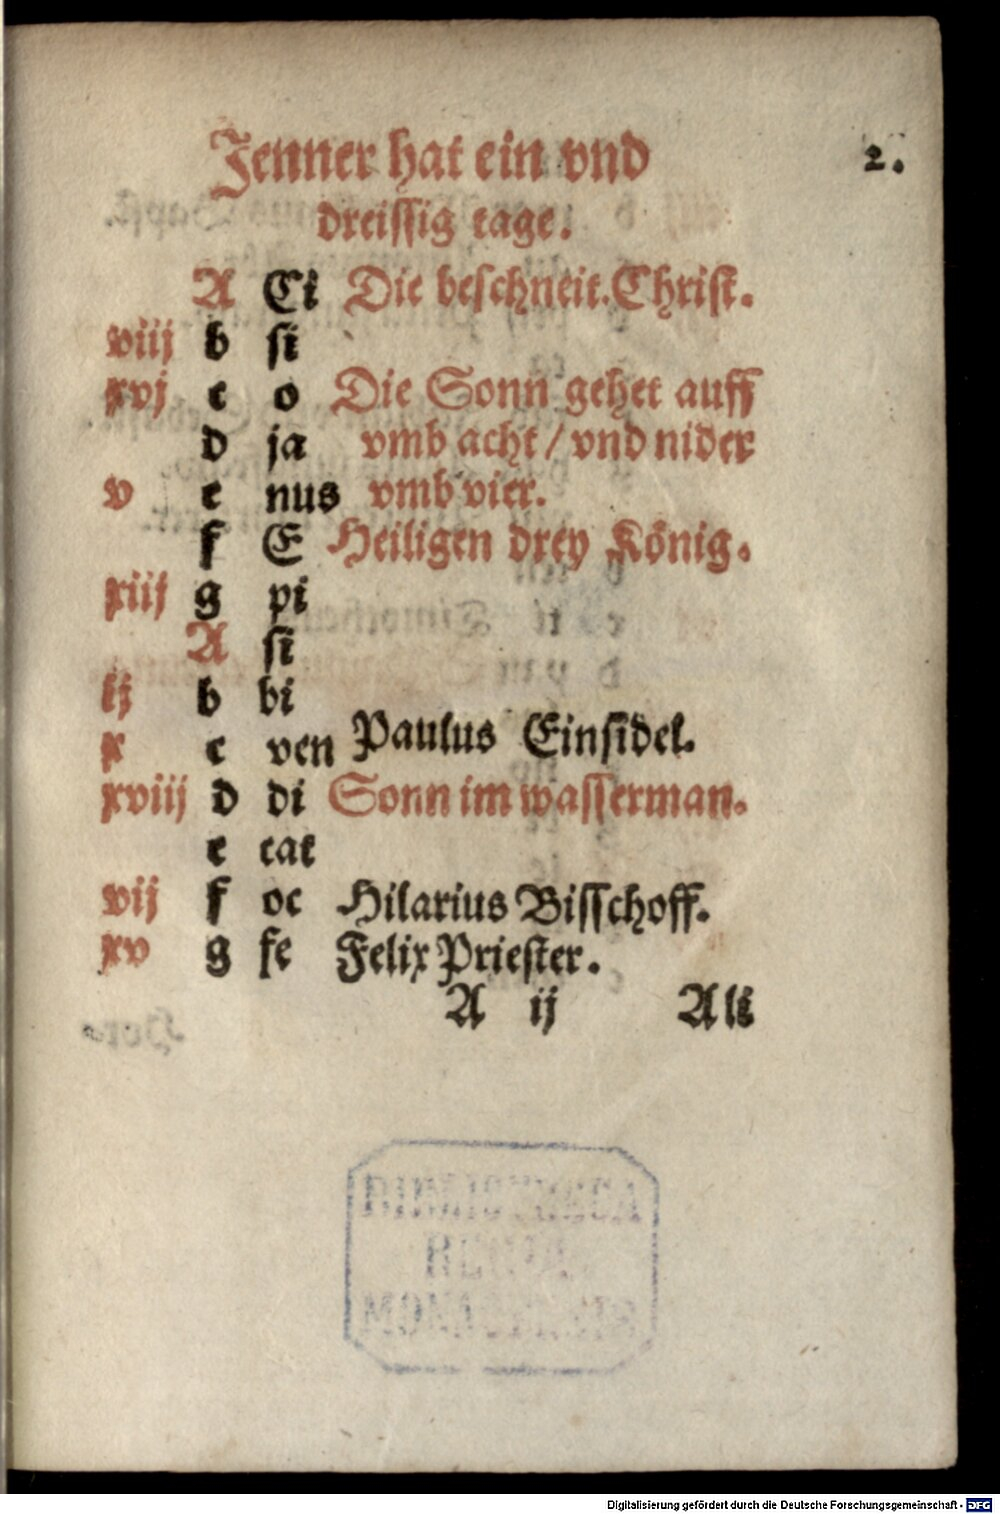 Jenner hat ein vnd
2.
dreissig tage.
A Ci Die beschneit. Christ.
viij b si
xvj c o Die Sonn gehet auff
d ja vmb acht / vnd nider
v e nus vmb vier.
f E Heiligen drey König.
xiij g pi
A si
ij b bi
x c ven Paulus Einsidel.
xviij d di Sonn im wasserman.
e cat
vij f oc Hilarius Bisschoff.
xv g fe Felix Priester.
A ij Ali
BIBLIOTHECA
REGIA
MONACENSIS
Digitalisierung gefördert durch die Deutsche Forschungsgemeinschaft - DFG